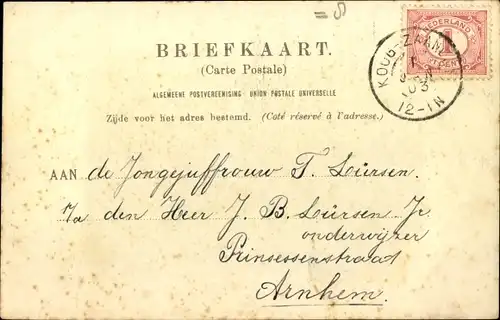 = 8
BRIEFKAART.
(Carte Postale)
ALGEMEENE POSTVEREENIGING - UNION POSTALE UNIVERSELLE
Zijde voor het adres bestemd. (Coté réservé à l'adresse.)
NEDERLAND
1
CENT
KOOG-ZAAND
03
12-1N
AAN de Jongejuffrouw T. Lürsen.
p/a den Heer J. B. Lürsen Jr.
onderwijzer
Prinsessenstraat
Arnhem.